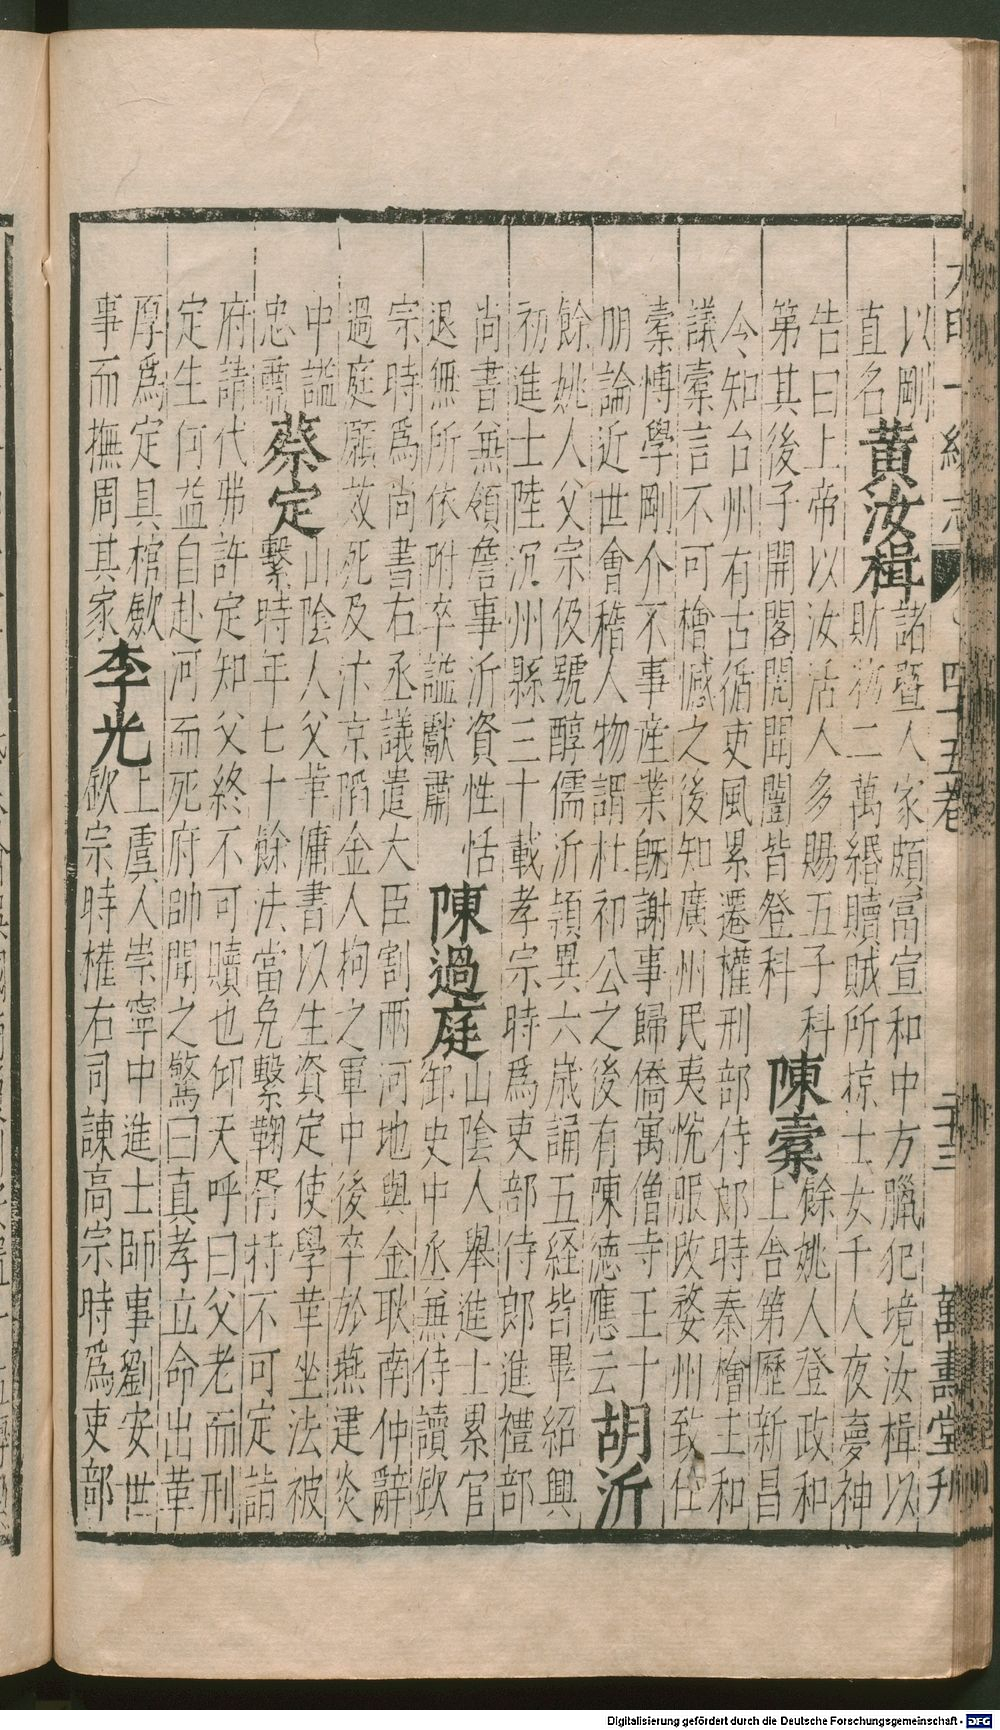 大明一統志 四十五卷 二十三 萬壽堂刋
以剛
直名
黃汝楫
諸暨人家頗富宣和中方臘犯境汝楫以
財物二萬緡贖賊所掠士女千人夜夢神
告曰上帝以汝活人多賜五子科
第其後子開閣閎聞闓皆登科
陳橐
餘姚人登政和
上舍第歷新昌
令知台州有古循吏風累遷權刑部侍郎時秦檜主和
議橐言不可檜憾之後知廣州民夷悅服改婺州致仕
橐博學剛介不事産業旣謝事歸僑寓僧寺王十
朋論近世會稽人物謂杜初公之後有陳德應云
胡沂
餘姚人父宗伋號醇儒沂頴異六歲誦五経皆畢紹興
初進士陸沉州縣三十載孝宗時爲吏部侍郎進禮部
尚書兼領詹事沂資性恬
退無所依附卒諡獻肅
陳過庭
山陰人舉進士累官
御史中丞兼侍讀欽
宗時爲尚書右丞議遣大臣割兩河地與金耿南仲辭
過庭願效死及汴京陷金人拘之軍中後卒於燕建炎
中諡
忠肅
蔡定
山陰人父革傭書以生資定使學革坐法被
繫時年七十餘法當免繫鞫胥持不可定詣
府請代弗許定知父終不可贖也仰天呼曰父老而刑
定生何益自赴河而死府帥聞之驚曰真孝立命出革
厚爲定具棺斂
事而撫周其家
李光
上虞人崇寧中進士師事劉安世
欽宗時權右司諫高宗時爲吏部
Digitalisierung gefördert durch die Deutsche Forschungsgemeinschaft - DFG